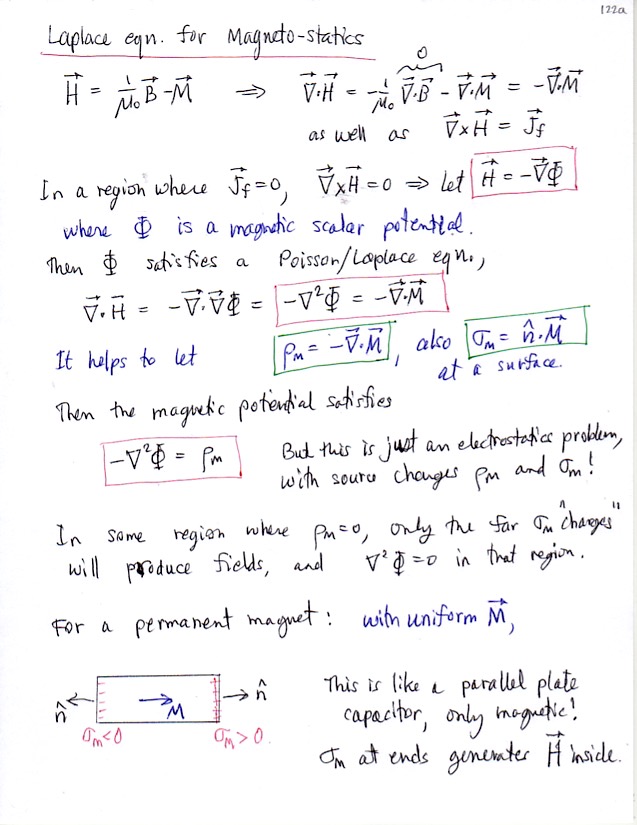 122a
Laplace eqn. for Magneto-statics
0
H⃗ = 1/μ₀ B⃗ - M⃗ ⇒ ∇⃗·H⃗ = -1/μ₀ ∇⃗·B⃗ - ∇⃗·M⃗ = -∇⃗·M⃗
as well as ∇⃗×H⃗ = J⃗f
In a region where J⃗f = 0, ∇⃗×H⃗ = 0 ⇒ let H⃗ = -∇⃗Φ
where Φ is a magnetic scalar potential.
Then Φ satisfies a Poisson/Laplace eqn.,
∇⃗·H⃗ = -∇⃗·∇⃗Φ = -∇²Φ = -∇⃗·M⃗
It helps to let ρM = -∇⃗·M⃗, also σM = n̂·M⃗
at a surface.
Then the magnetic potential satisfies
-∇²Φ = ρM But this is just an electrostatics problem,
with source charges ρM and σM!
In some region where ρM = 0, only the far σM "charges"
will produce fields, and ∇²Φ = 0 in that region.
For a permanent magnet: with uniform M⃗,
n̂ M n̂
σM < 0 σM > 0
This is like a parallel plate
capacitor, only magnetic!
σM at ends generates H⃗ inside.